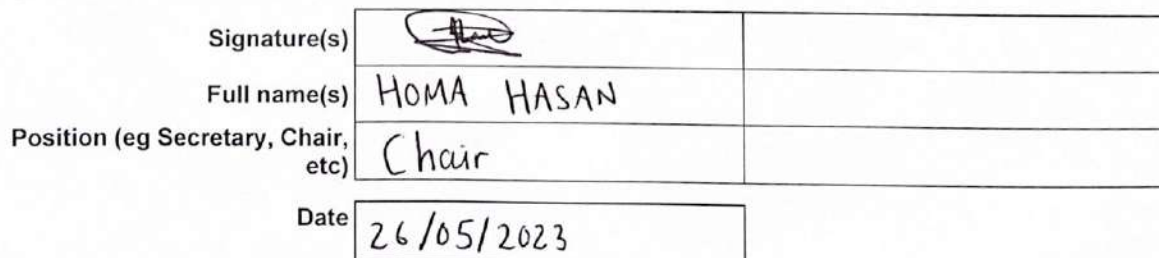 Signature(s)
Full name(s) HOMA HASAN
Position (eg Secretary, Chair,
etc) Chair
Date 26/05/2023